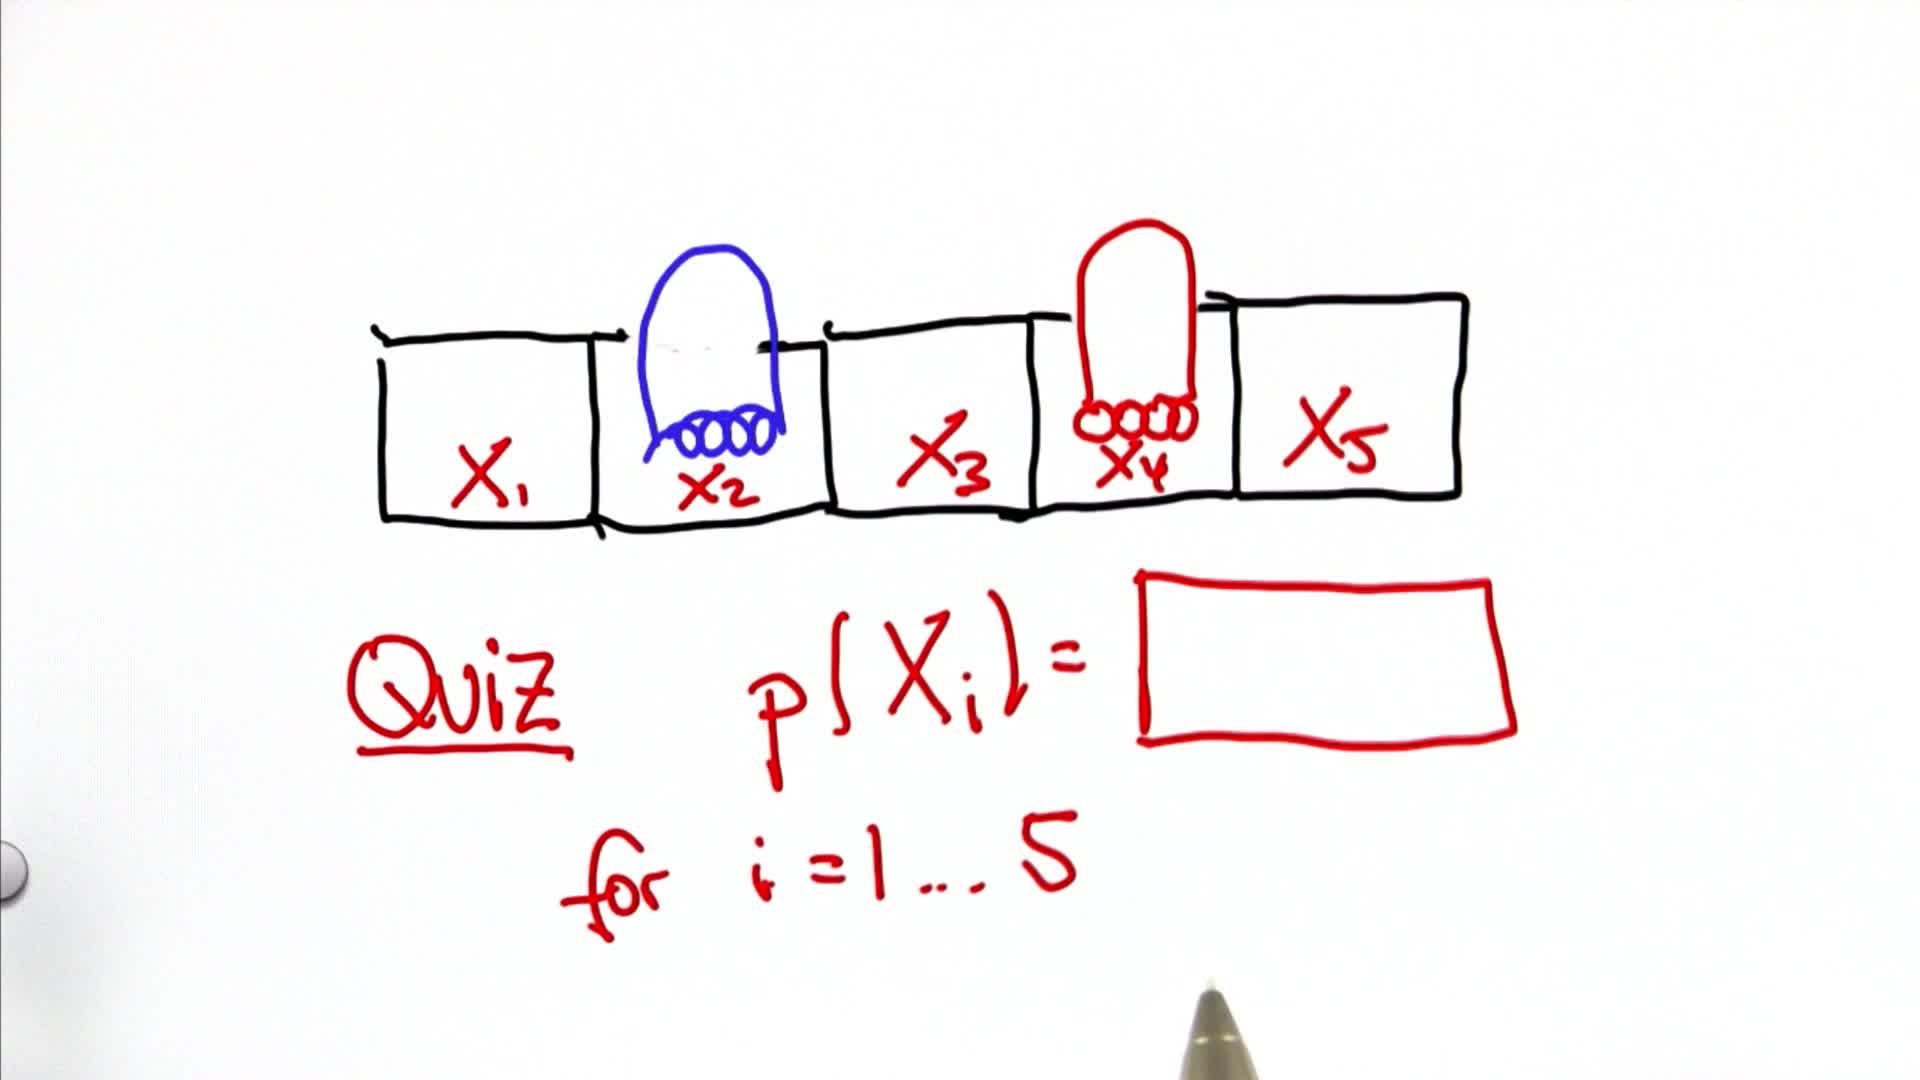 X1 X2 X3 X4 X5
Quiz p(Xi) =
for i = 1 ... 5